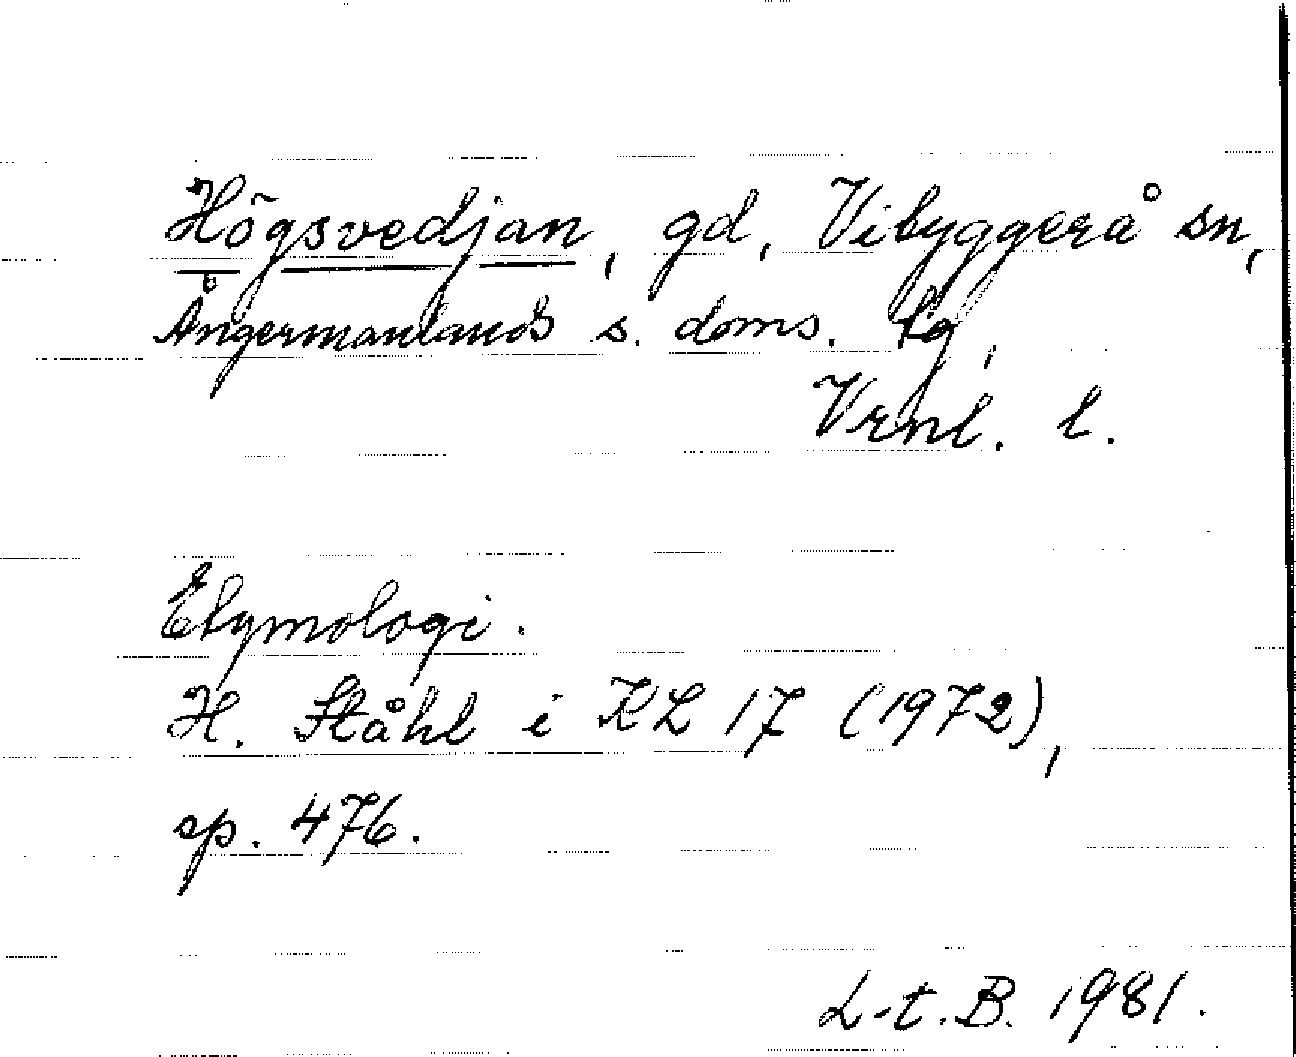 Högsvedjan, gd, Vibyggerå sn,
Ångermanlands s. doms. tg,
Vrnl. l.
Etymologi.
H. Ståhl i KL 17 (1972),
sp. 476.
L-t. B. 1981.